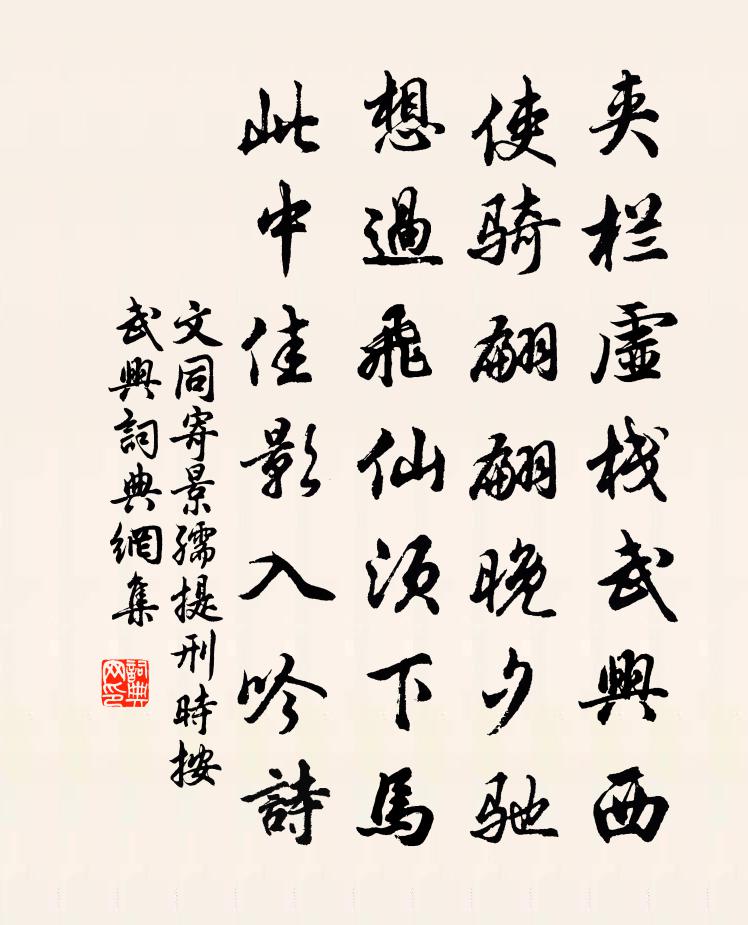 夹栏虚栈武興西
使骑翩翩晚夕驰
想過飛仙須下馬
此中佳影入吟詩
文同寄景孺提刑時按
武興詞典網集
詞典网印